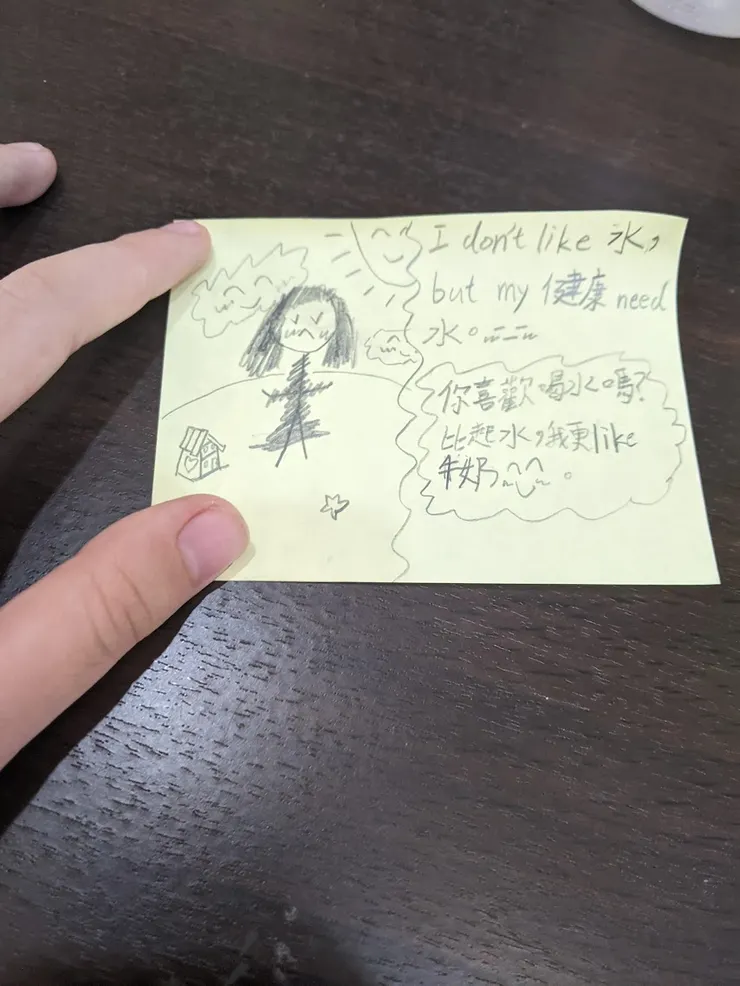 I don't like 水，
but my 健康 need
水。
你喜歡喝水嗎?
比起水，我更like
牛奶。